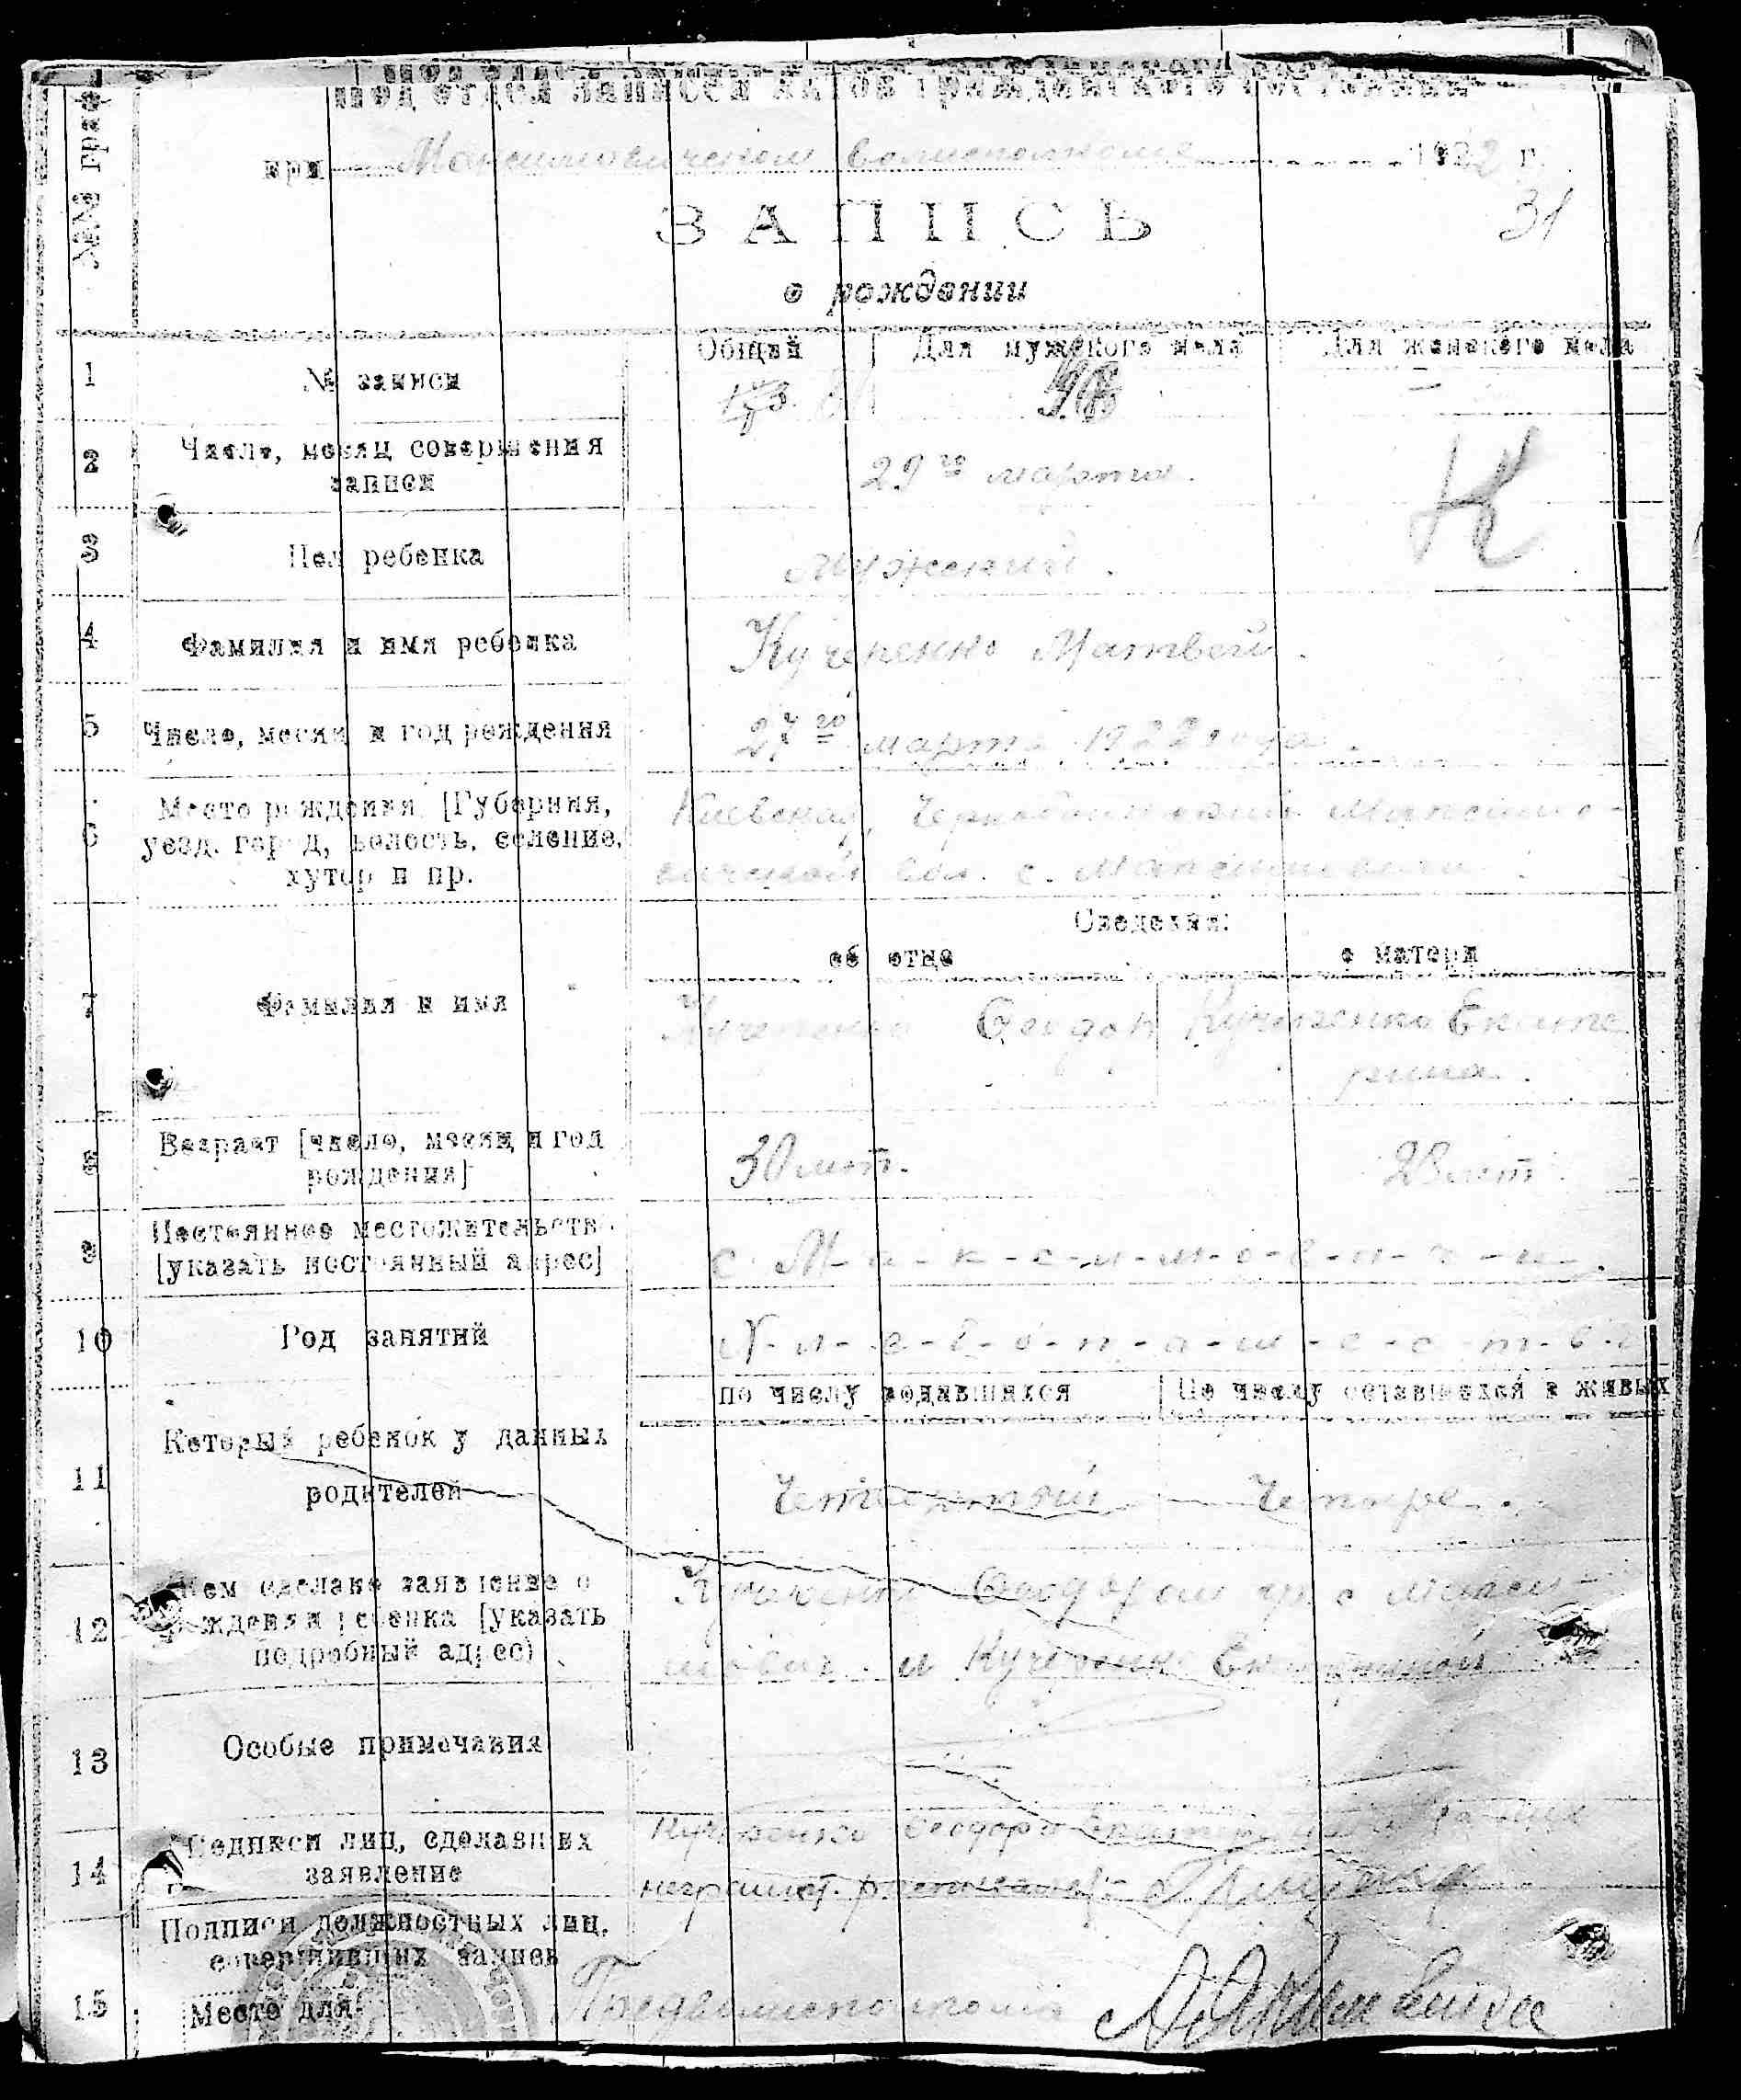 №№ граф
Под'отдел записей актов гражданского состояния
при Максимовическом волисполкоме 1922 г.
31
ЗАПИСЬ
о рождении
Общий Для мужского пола Для женского пола
1 № записи
2 Число, месяц совершения
записи
29го марта.
К
3 Пол ребенка мужской.
4 Фамилия и имя ребенка Кучеренко Матвей.
5 Число, месяц и год рождения 27го марта 1922 года.
6 Место рождения [Губерния,
уезд. город, волость, селение,
хутор и пр.
Киевская, Максимо-
вической вол. с. Максимовичи
Сведения:
об отце о матери
7 Фамилия и имя Кучеренко Феодор Кучеренко Екате
рина.
8 Возраст [число, месяц и год
рождения]
30 лет. 28 лет
9 Постоянное местожительство
[указать постоянный адрес]
с. М-а-к-с-и-м-о-в-и-ч-и.
10 Род занятий Х-л-е-б-о-п-а-ш-е-с-т-в-о
по числу родившихся По числу оставшихся в живых
11 Который ребенок у данных
родителей
Четвертый Четыре.
12 Кем сделано заявление о
рождении ребенка [указать
подробный адрес)
Кучеренко Феодором гр. с Макси-
мович. и Кучеренко Екатериной
13 Особые примечания
14 Подписи лиц, сделавших
заявление
Кучеренко Феодор и Екатерина а за них
неграмот. расписался
Подписи должностных лиц,
совершивших запись
15 Место для
Предволисполкома